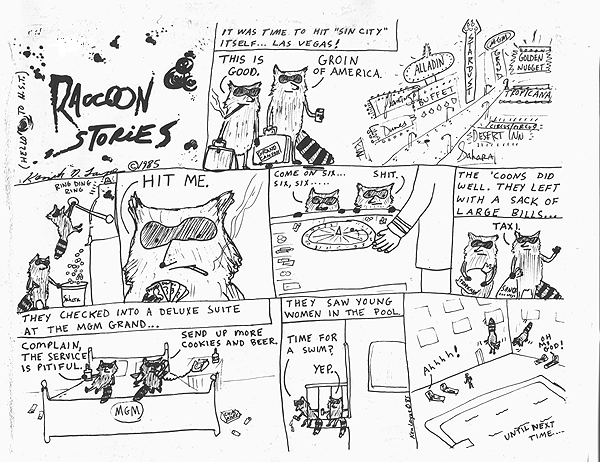 RACCOON
STORIES
©1985
IT WAS TIME TO HIT "SIN CITY"
ITSELF... LAS VEGAS!
THIS IS
GOOD.
GROIN
OF AMERICA.
ALLADIN
STARDUST
MGM
GRAND
GOLDEN
NUGGET
TROPICANA
BUFFET
Dunes
CIRCUS CIRCUS
DESERT INN
Sahara
RING DING
RING
Sahara
HIT ME.
COME ON SIX...
SIX, SIX.....
SHIT.
THE 'COONS DID
WELL. THEY LEFT
WITH A SACK OF
LARGE BILLS...
TAXI.
THEY CHECKED INTO A DELUXE SUITE
AT THE MGM GRAND...
COMPLAIN,
THE SERVICE
IS PITIFUL.
SEND UP MORE
COOKIES AND BEER.
MGM
THEY SAW YOUNG
WOMEN IN THE POOL.
TIME FOR
A SWIM?
YEP.
Ahhhh!
OH
GOD!
UNTIL NEXT
TIME...